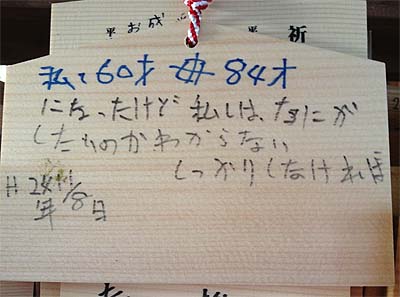 お成
平 平 祈
私も60才 母 84才
になったけど 私しは、なにが
したいのかわからない
しっかりしなければ
H 24
年 18日